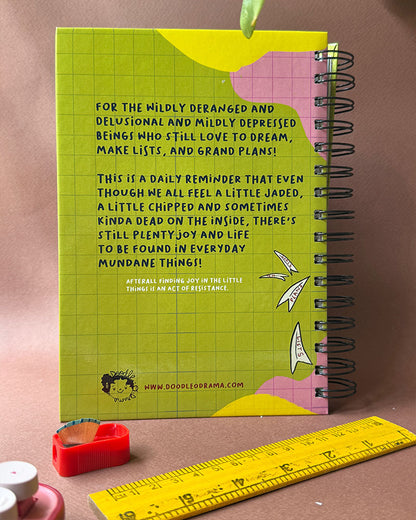 FOR THE WILDLY DERANGED AND
DELUSIONAL AND MILDLY DEPRESSED
BEINGS WHO STILL LOVE TO DREAM,
MAKE LISTS, AND GRAND PLANS!
THIS IS A DAILY REMINDER THAT EVEN
THOUGH WE ALL FEEL A LITTLE JADED,
A LITTLE CHIPPED AND SOMETIMES
KINDA DEAD ON THE INSIDE, THERE'S
STILL PLENTY JOY AND LIFE
TO BE FOUND IN EVERYDAY
MUNDANE THINGS!
AFTERALL FINDING JOY IN THE LITTLE
THINGS IS AN ACT OF RESISTANCE.
WWW.DOODLEODRAMA.COM